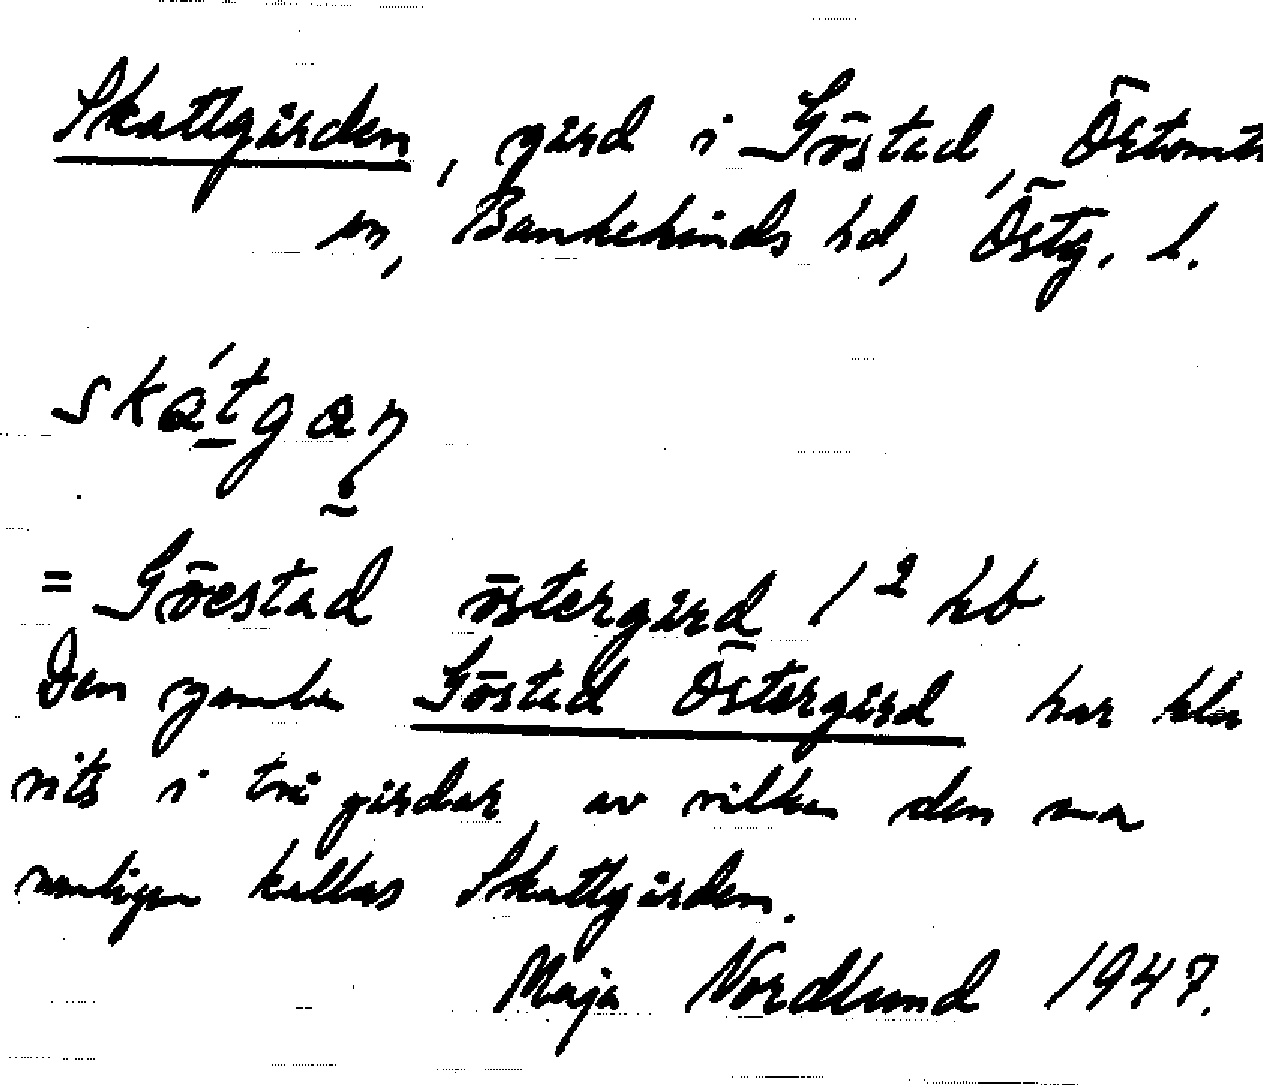 Skattgården, gård i Göstad, Östomta
sn, Bankekinds hd, Östg. l.
skátgaṇ
= Göestad östergård 1² hb
Den gamla Göstad Östergård har klu
vits i två gårdar av vilka den ena
vanligen kallas Skattgården.
Maja Nordlund 1947.